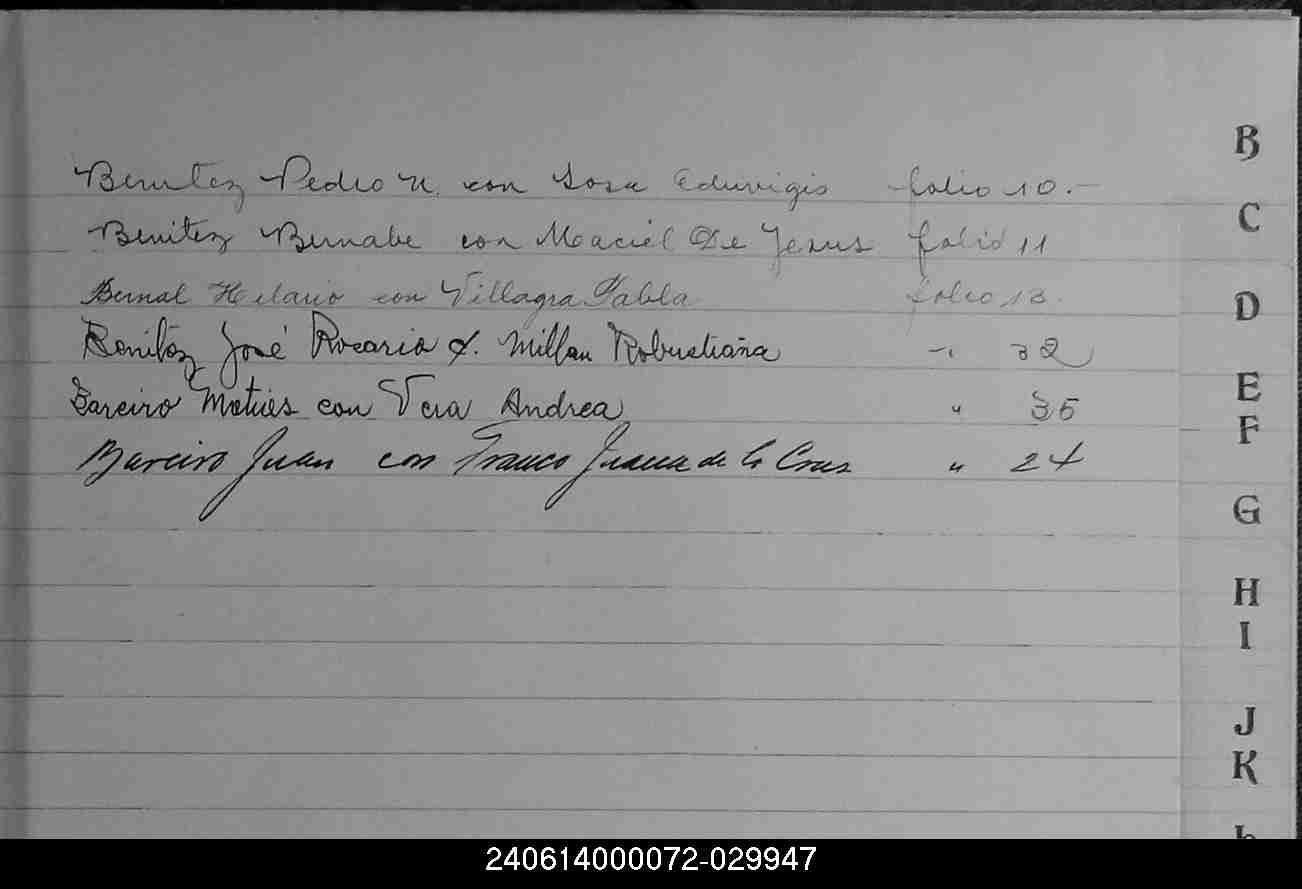 Benitez Pedro N. con Sosa Eduvigis folio 10.-
Benitez Bernabe con Maciel De Jesus folio 11
Bernal Hilario con Villagra Pabla folio 13.
Benitez José Rosario c. Millan Robustiana " 32
Bareiro Maties con Vera Andrea " 36
Bareiro Juan con Franco Juana de la Cruz " 24
B
C
D
E
F
G
H
I
J
K
L
240614000072-029947